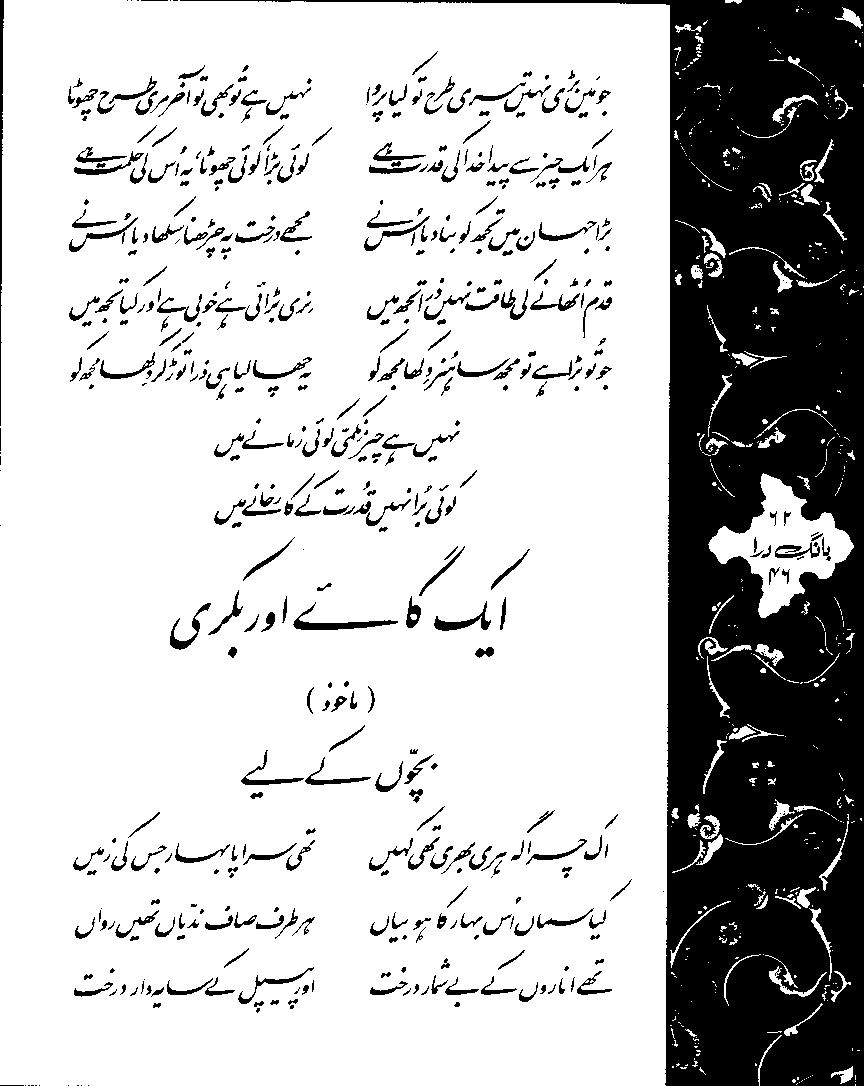 جو مَیں بڑی نہیں تیری طرح تو کیا پروا نہیں ہے تُو بھی تو آخر مری طرح چھوٹا
ہر ایک چیز سے پیدا خدا کی قدرت ہے کوئی بڑا کوئی چھوٹا یہ اُس کی حکمت ہے
بڑا جہان میں تجھ کو بنا دیا اُس نے مجھے درخت پہ چڑھنا سکھا دیا اُس نے
قدم اُٹھانے کی طاقت نہیں ذرا تجھ میں نری بڑائی ہے خوبی ہے اور کیا تجھ میں
جو تُو بڑا ہے تو مجھ سا ہُنر دکھا مجھ کو یہ چھالیا ہی ذرا توڑ کر دکھا مجھ کو
نہیں ہے چیز نکمّی کوئی زمانے میں
کوئی بُرا نہیں قُدرت کے کارخانے میں
۶۲
بانگِ درا
۴۶
ایک گائے اور بکری
(ماخوذ)
بچّوں کے لیے
اک چراگہ ہری بھری تھی کہیں تھی سراپا بہار جس کی زمیں
کیا سماں اُس بہار کا ہو بیاں ہر طرف صاف ندّیاں تھیں رواں
تھے اناروں کے بے شمار درخت اور پیپل کے سایہ دار درخت